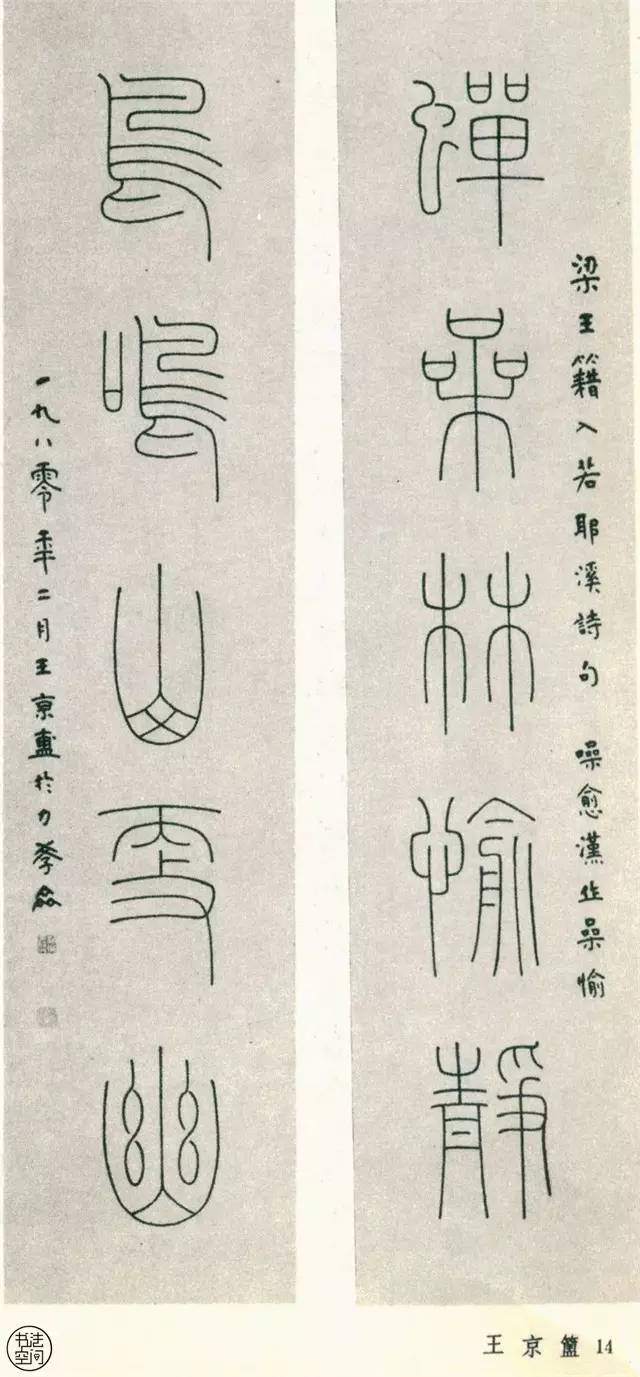 蟬喿林愉靜
梁王籍入若耶溪詩句 噪愈漢作喿愉
鳥鳴山更幽
一九八零年二月王京盙於力學盦
王京簠 14
书法空间